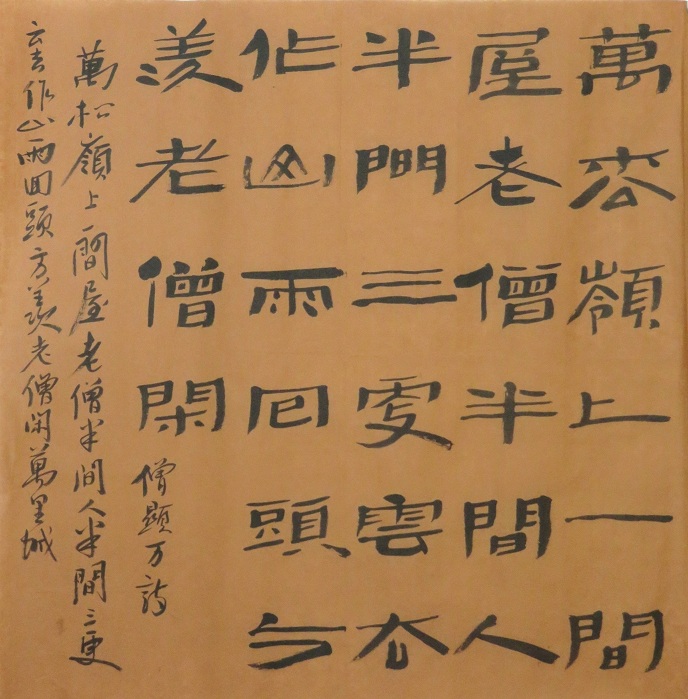 萬枩嶺上一間
屋老僧半間人
半間三更雲去
作山雨回頭方
羨老僧閑
僧顯万詩
萬松嶺上一間屋老僧半间人半間三更
云去作山雨回頭方羨老僧闲萬里城